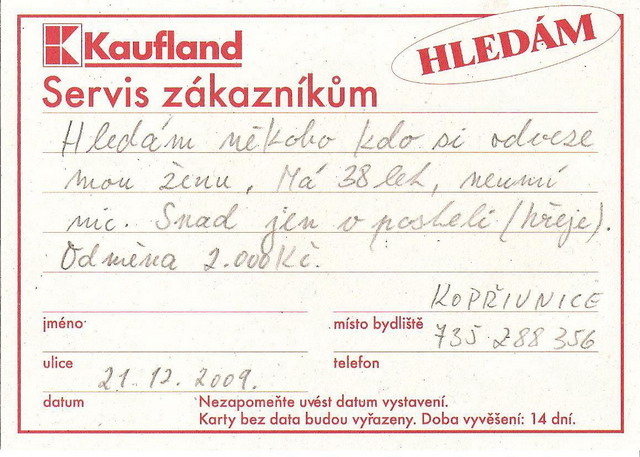 Kaufland
HLEDÁM
Servis zákazníkům
Hledám někoho kdo si odveze
mou ženu, Má 38 let, neumí
nic. Snad jen v posteli (hřeje).
Odměna 2.000Kč.
KOPŘIVNICE
jméno
místo bydliště
735 288 356
ulice
telefon
21.12.2009.
datum
Nezapomeňte uvést datum vystavení.
Karty bez data budou vyřazeny. Doba vyvěšení: 14 dní.